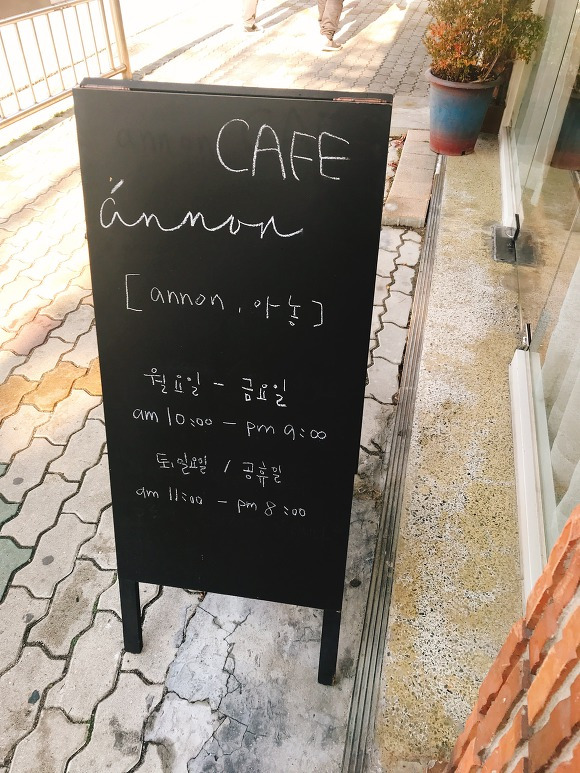 CAFE
ánnon
[annon, 아농]
월요일 - 금요일
am 10:00 - pm 9:00
토,일요일 / 공휴일
am 11:00 - pm 8:00